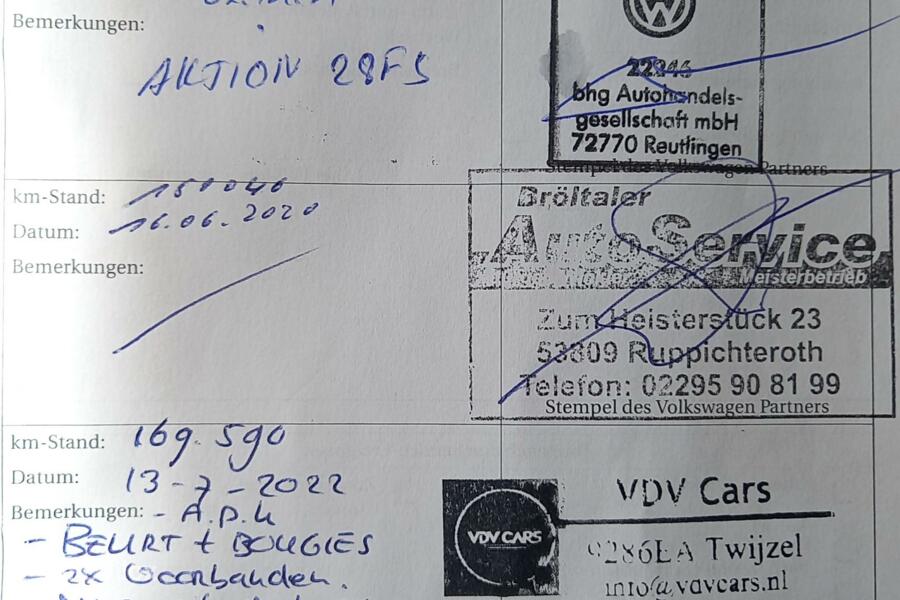 Bemerkungen:
AKTION 28F5
22246
bhg Autohandels-
gesellschaft mbH
72770 Reutlingen
Stempel des Volkswagen Partners
km-Stand: 151046
Datum: 16.06.2020
Bemerkungen:
Bröltaler
AutoService
Meisterbetrieb
Zum Heisterstück 23
53809 Ruppichteroth
Telefon: 02295 90 81 99
Stempel des Volkswagen Partners
km-Stand: 169.590
Datum: 13-7-2022
Bemerkungen: - A.P.K
- BEURT + BOUGIES
- 2x Voorbanden.
VDV CARS
VDV Cars
9286EA Twijzel
info@vdvcars.nl